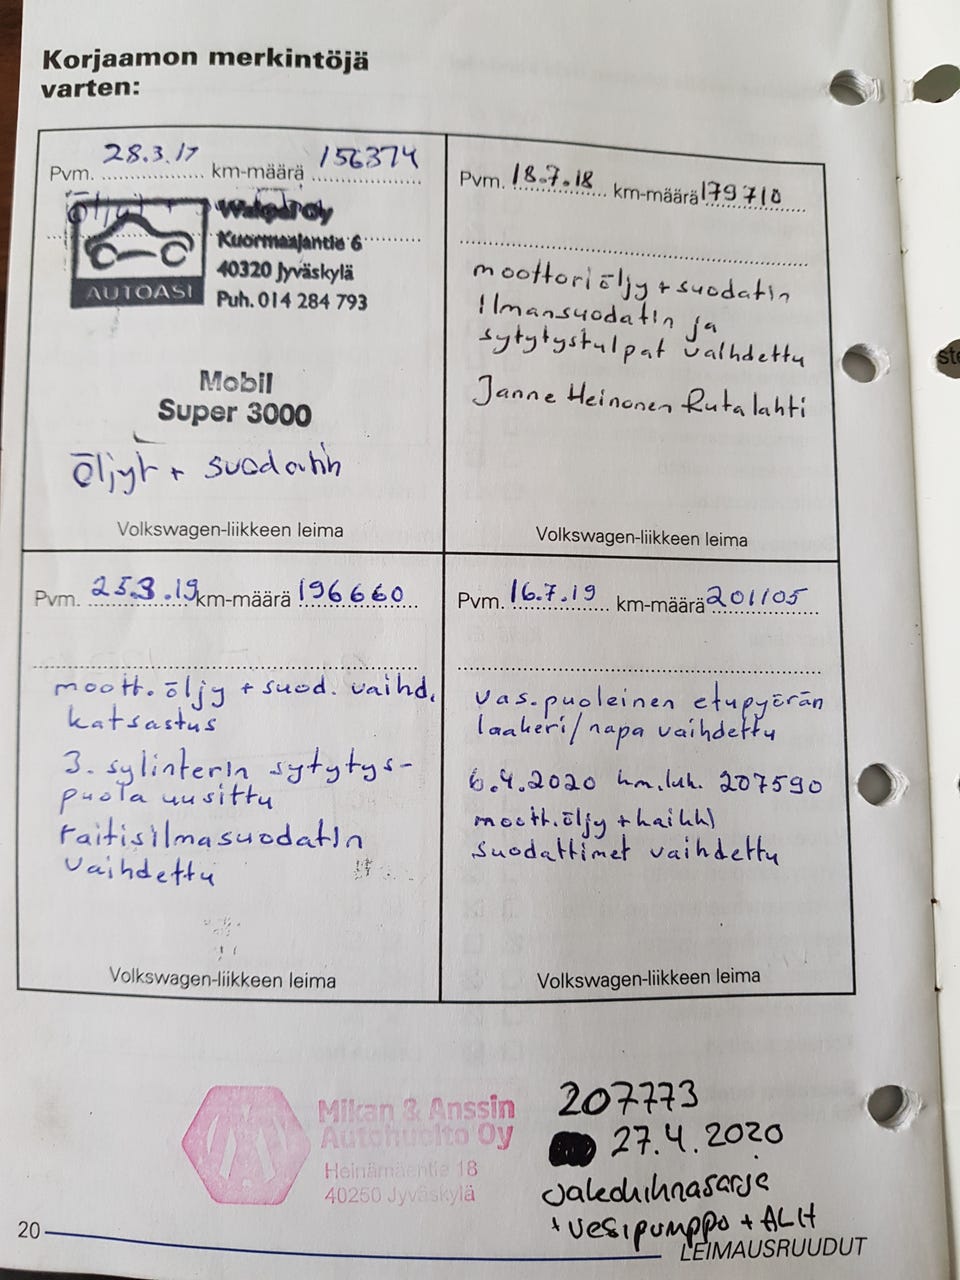 Korjaamon merkintöjä
varten:
Pvm. 28.3.17 km-määrä 156374
Öljyt +
Kuormaajantie 6
40320 Jyväskylä
Puh. 014 284 793
AUTOASI
Mobil
Super 3000
öljyt + suodatin
Volkswagen-liikkeen leima
Pvm. 18.7.18 km-määrä 179710
moottoriöljy + suodatin
ilmansuodatin ja
sytytystulpat vaihdettu
Janne Heinonen Rutalahti
Volkswagen-liikkeen leima
Pvm. 25.3.19 km-määrä 196660
moott.öljy + suod. vaihd.
katsastus
3. sylinterin sytytys-
puola uusittu
raitisilmasuodatin
vaihdettu
Volkswagen-liikkeen leima
Pvm. 16.7.19 km-määrä 201105
vas.puoleinen etupyörän
laakeri/napa vaihdettu
6.4.2020 km.luk. 207590
moott.öljy + kaikki
suodattimet vaihdettu
Volkswagen-liikkeen leima
Mikan & Anssin
Autohuolto Oy
Heinämäentie 18
40250 Jyväskylä
207773
27.4.2020
Jakohihnasarja
+ vesipumppo + ALH
20
LEIMAUSRUUDUT
ste